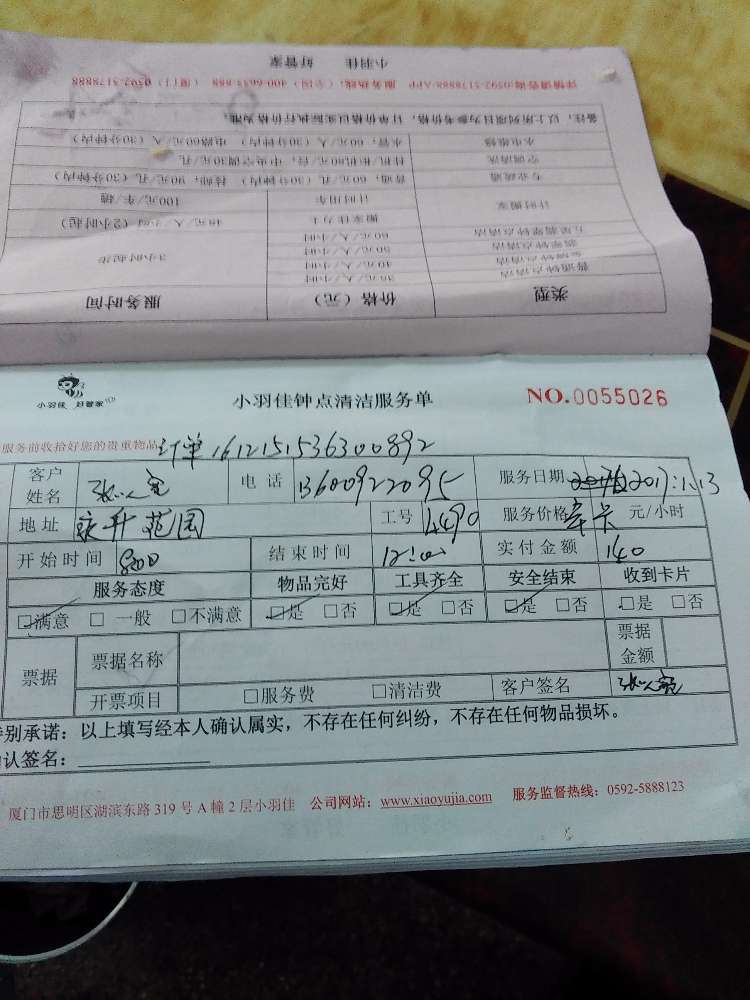 小羽佳 好管家
详情咨询:0592-5178888/APP 服务热线:(全国)400-6633-888 (厦门)0592-5178888
备注:以上所列项目为参考价格,订单价格以实际执行价格为准。
水电维修 水管:60元/人(30分钟内) 电路60元/人(30分钟内)
空调清洗 挂机/柜机90元/台,中央空调30元/孔
专业疏通 普通:60元/孔(30分钟内) 技师:90元/孔(30分钟内)
计时搬家 计时用车 100元/车/趟
搬家佳力士 48元/人/小时(2小时起)
五星翡翠钟点清洁 60元/人/小时
翡翠钟点清洁 50元/人/小时 3小时起步
金牌钟点清洁 40元/人/小时
普通钟点清洁 36元/人/小时
类型 价格(元) 服务时间
小羽佳 好管家
小羽佳钟点清洁服务单 NO.0055026
服务前收拾好您的贵重物品 订单161215153630892
客户姓名 电话 13600922095 服务日期 2017:1.13
地址 永升范园 工号 4490 服务价格 年卡 元/小时
开始时间 8:00 结束时间 12:00 实付金额 140
服务态度 物品完好 工具齐全 安全结束 收到卡片
☑满意 □一般 □不满意 ☑是 □否 ☑是 □否 ☑是 □否 ☑是 □否
票据 票据名称 票据金额
开票项目 □服务费 □清洁费 客户签名
特别承诺:以上填写经本人确认属实,不存在任何纠纷,不存在任何物品损坏。
确认签名:
厦门市思明区湖滨东路 319 号 A 幢 2 层小羽佳 公司网站:www.xiaoyujia.com 服务监督热线:0592-5888123